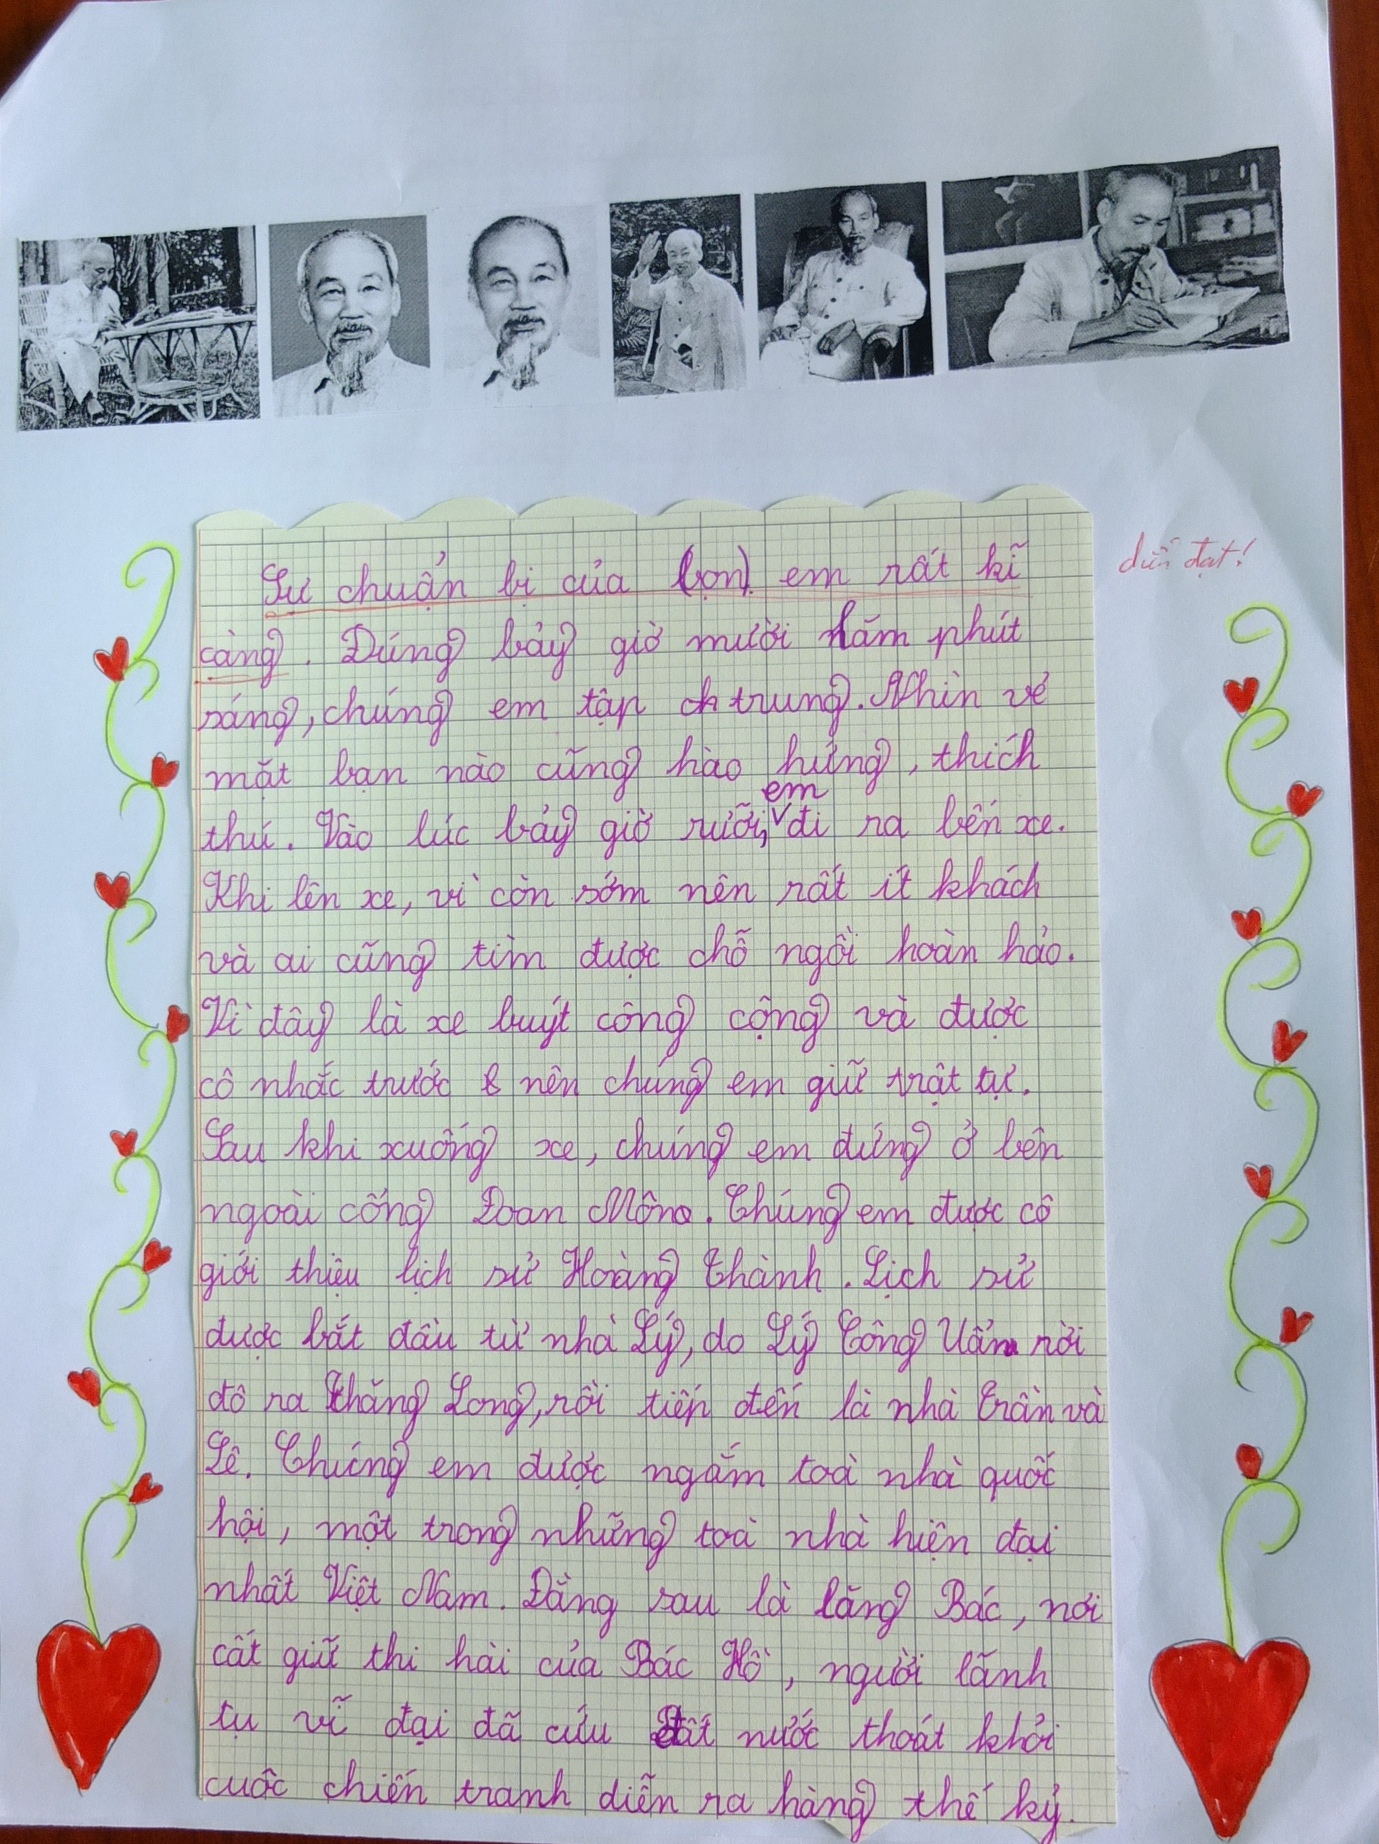 Sự chuẩn bị của (bọn) em rất kĩ
diễn đạt!
càng. Đúng bảy giờ mười lăm phút
sáng, chúng em tập ch trung. Nhìn vẻ
mặt bạn nào cũng hào hứng, thích
thú. Vào lúc bảy giờ rưỡi, em đi ra bến xe.
Khi lên xe, vì còn sớm nên rất ít khách
và ai cũng tìm được chỗ ngồi hoàn hảo.
Vì đây là xe buýt công cộng và được
cô nhắc trước nên chúng em giữ trật tự.
Sau khi xuống xe, chúng em đứng ở bên
ngoài cổng Đoan Môn. Chúng em được cô
giới thiệu lịch sử Hoàng thành. Lịch sử
được bắt đầu từ nhà Lý, do Lý Công Uẩn rời
đô ra Thăng Long, rồi tiếp đến là nhà Trần và
Lê. Chúng em được ngắm toà nhà quốc
hội, một trong những toà nhà hiện đại
nhất Việt Nam. Đằng sau là lăng Bác, nơi
cất giữ thi hài của Bác Hồ, người lãnh
tụ vĩ đại đã cứu đất nước thoát khỏi
cuộc chiến tranh diễn ra hàng thế kỷ.